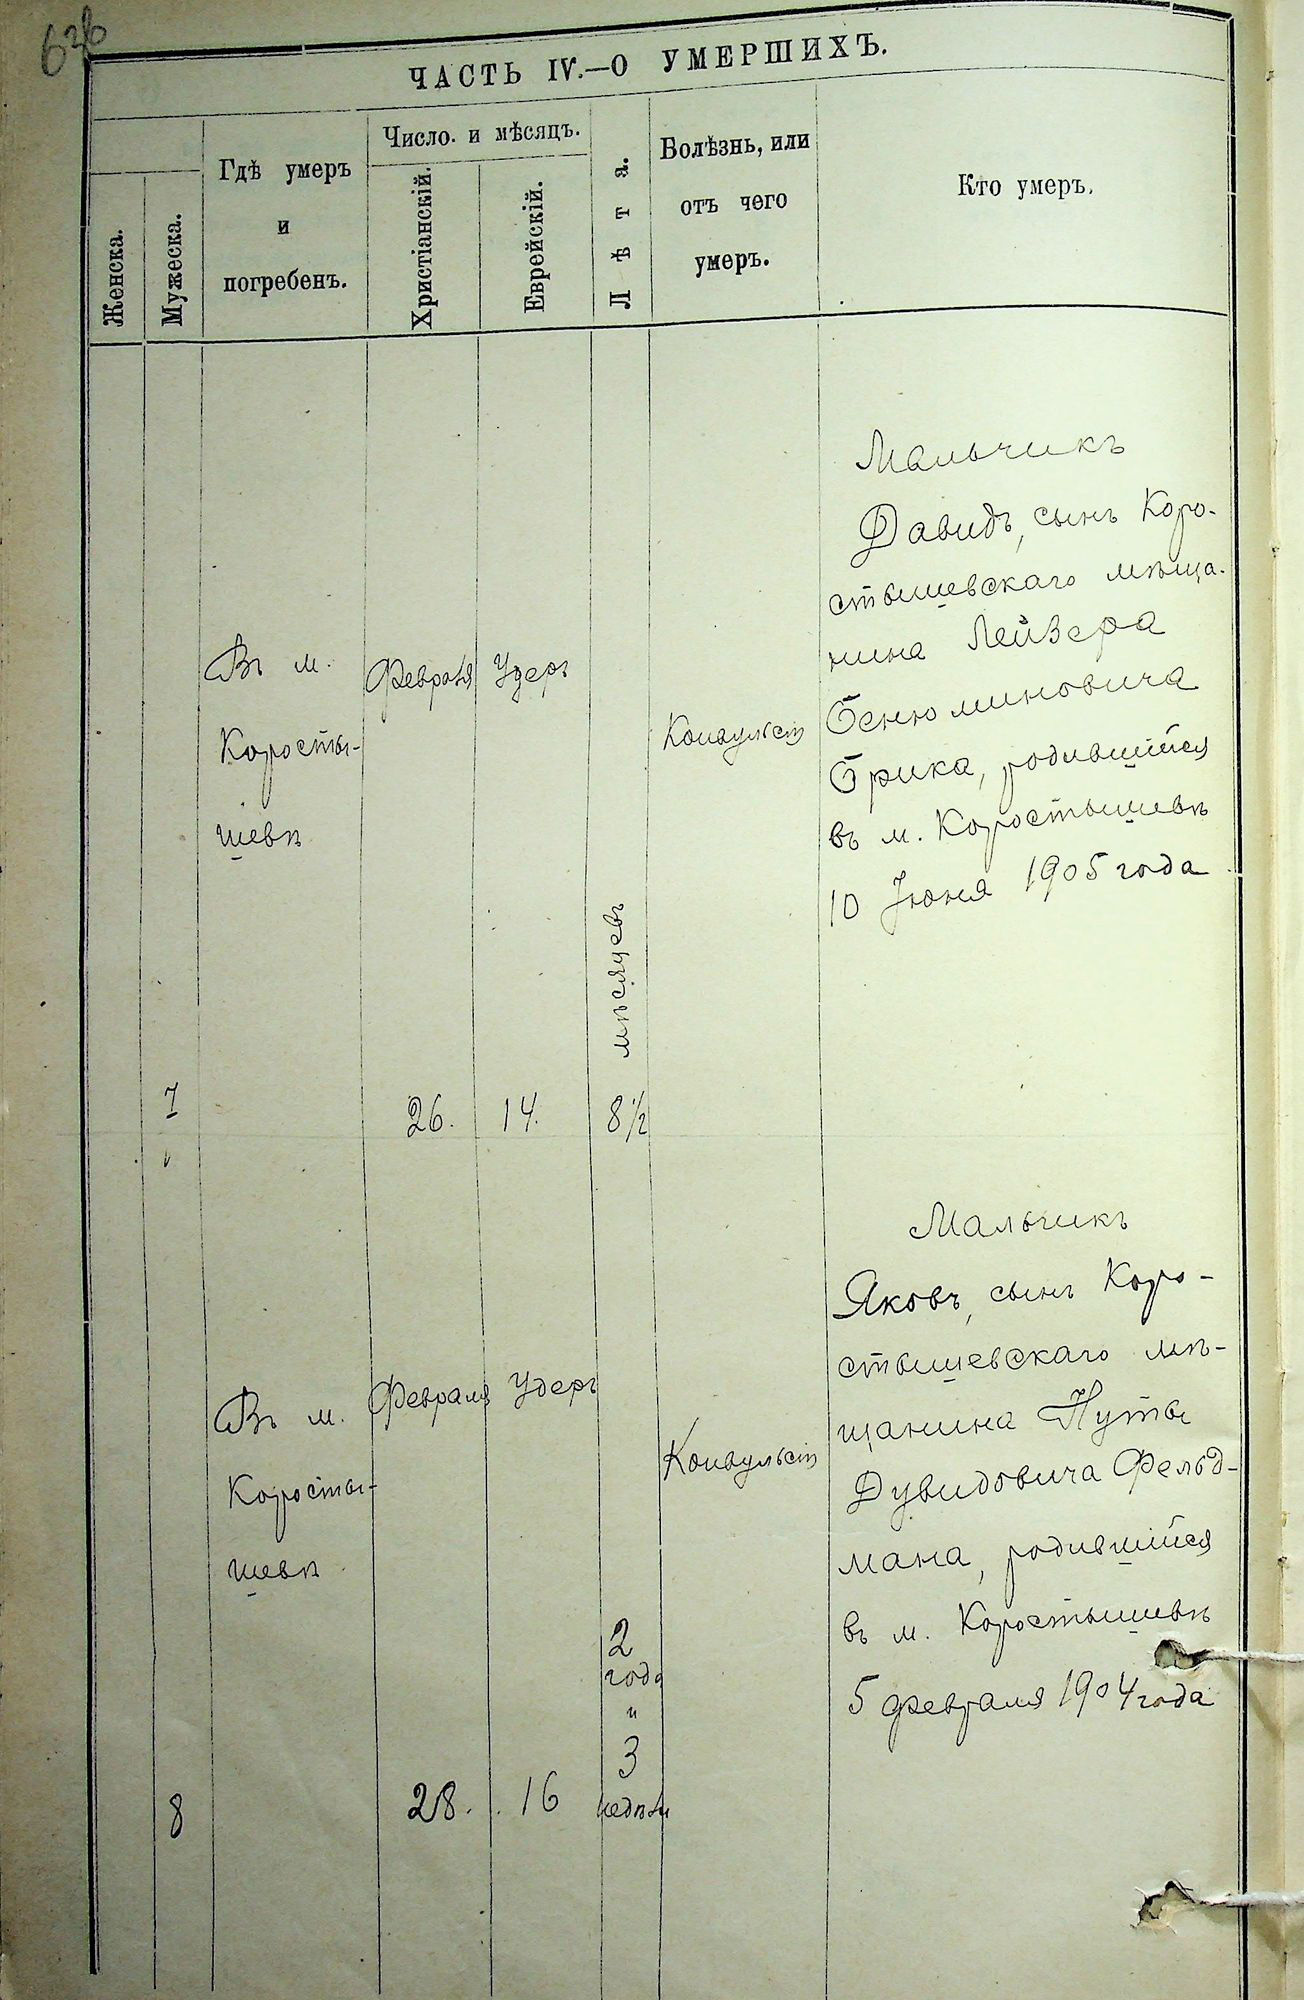 636
ЧАСТЬ IV.—О УМЕРШИХЪ.
Женска.
Мужеска.
Гдѣ умеръ
и
погребенъ.
Число. и мѣсяцъ.
Христіанскій.
Еврейскій.
Лѣта.
Болѣзнь, или
отъ чего
умеръ.
Кто умеръ.
7
Въ м.
Коросты-
шевѣ
Февраля
26.
Удеръ
14.
8 1/2
мѣсяцевъ
Конвульсіи
Мальчикъ
Давидъ, сынъ Коро-
стышевскаго мѣща-
нина Лейзера
Бенюминовича
Брика, родившійся
въ м. Коростышевѣ
10 Іюня 1905 года
8
Въ м.
Коросты-
шевѣ
Февраля
28.
Удеръ
16
2
года
и
3
недѣли
Конвульсіи
Мальчикъ
Яковъ, сынъ Коро-
стышевскаго мѣ-
щанина Нуты
Дувидовича Фельд-
мана, родившійся
въ м. Коростышевѣ
5 февраля 1904 года